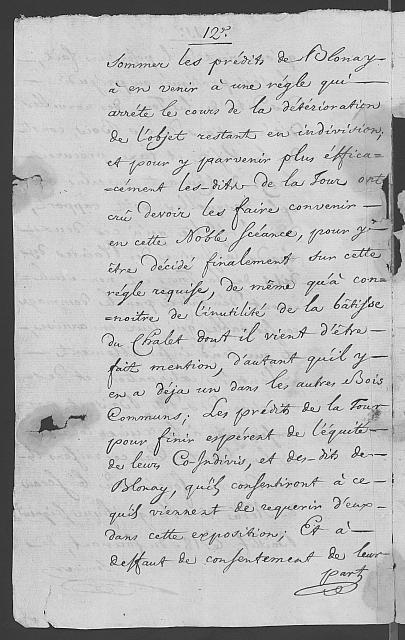 12e.
Sommer les prédits de Blonay
à en venir à une régle qui
arrête le cours de la détérioration
de l'objet restant en indivision,
et pour y parvenir plus éffica-
=cement les-dits de la Tour ont
crû devoir les faire convenir
en cette Noble Scéance, pour y
être décidé finalement sur cette
régle requise, de même qu'à con-
=noitre de l'inutilité de la bâtisse
du Chalet dont il vient d'être
fait mention, d'autant qu'il y
en a déja un dans les autres Bois
Communs; Les prédits de la Tour
pour finir espérent de l'équité
de leurs Co-Indivis, et des-dits de
Blonay, qu'ils consentiront à ce
qu'ils viennent de requerir d'eux
dans cette exposition; Et à
deffaut de consentement de leur
part